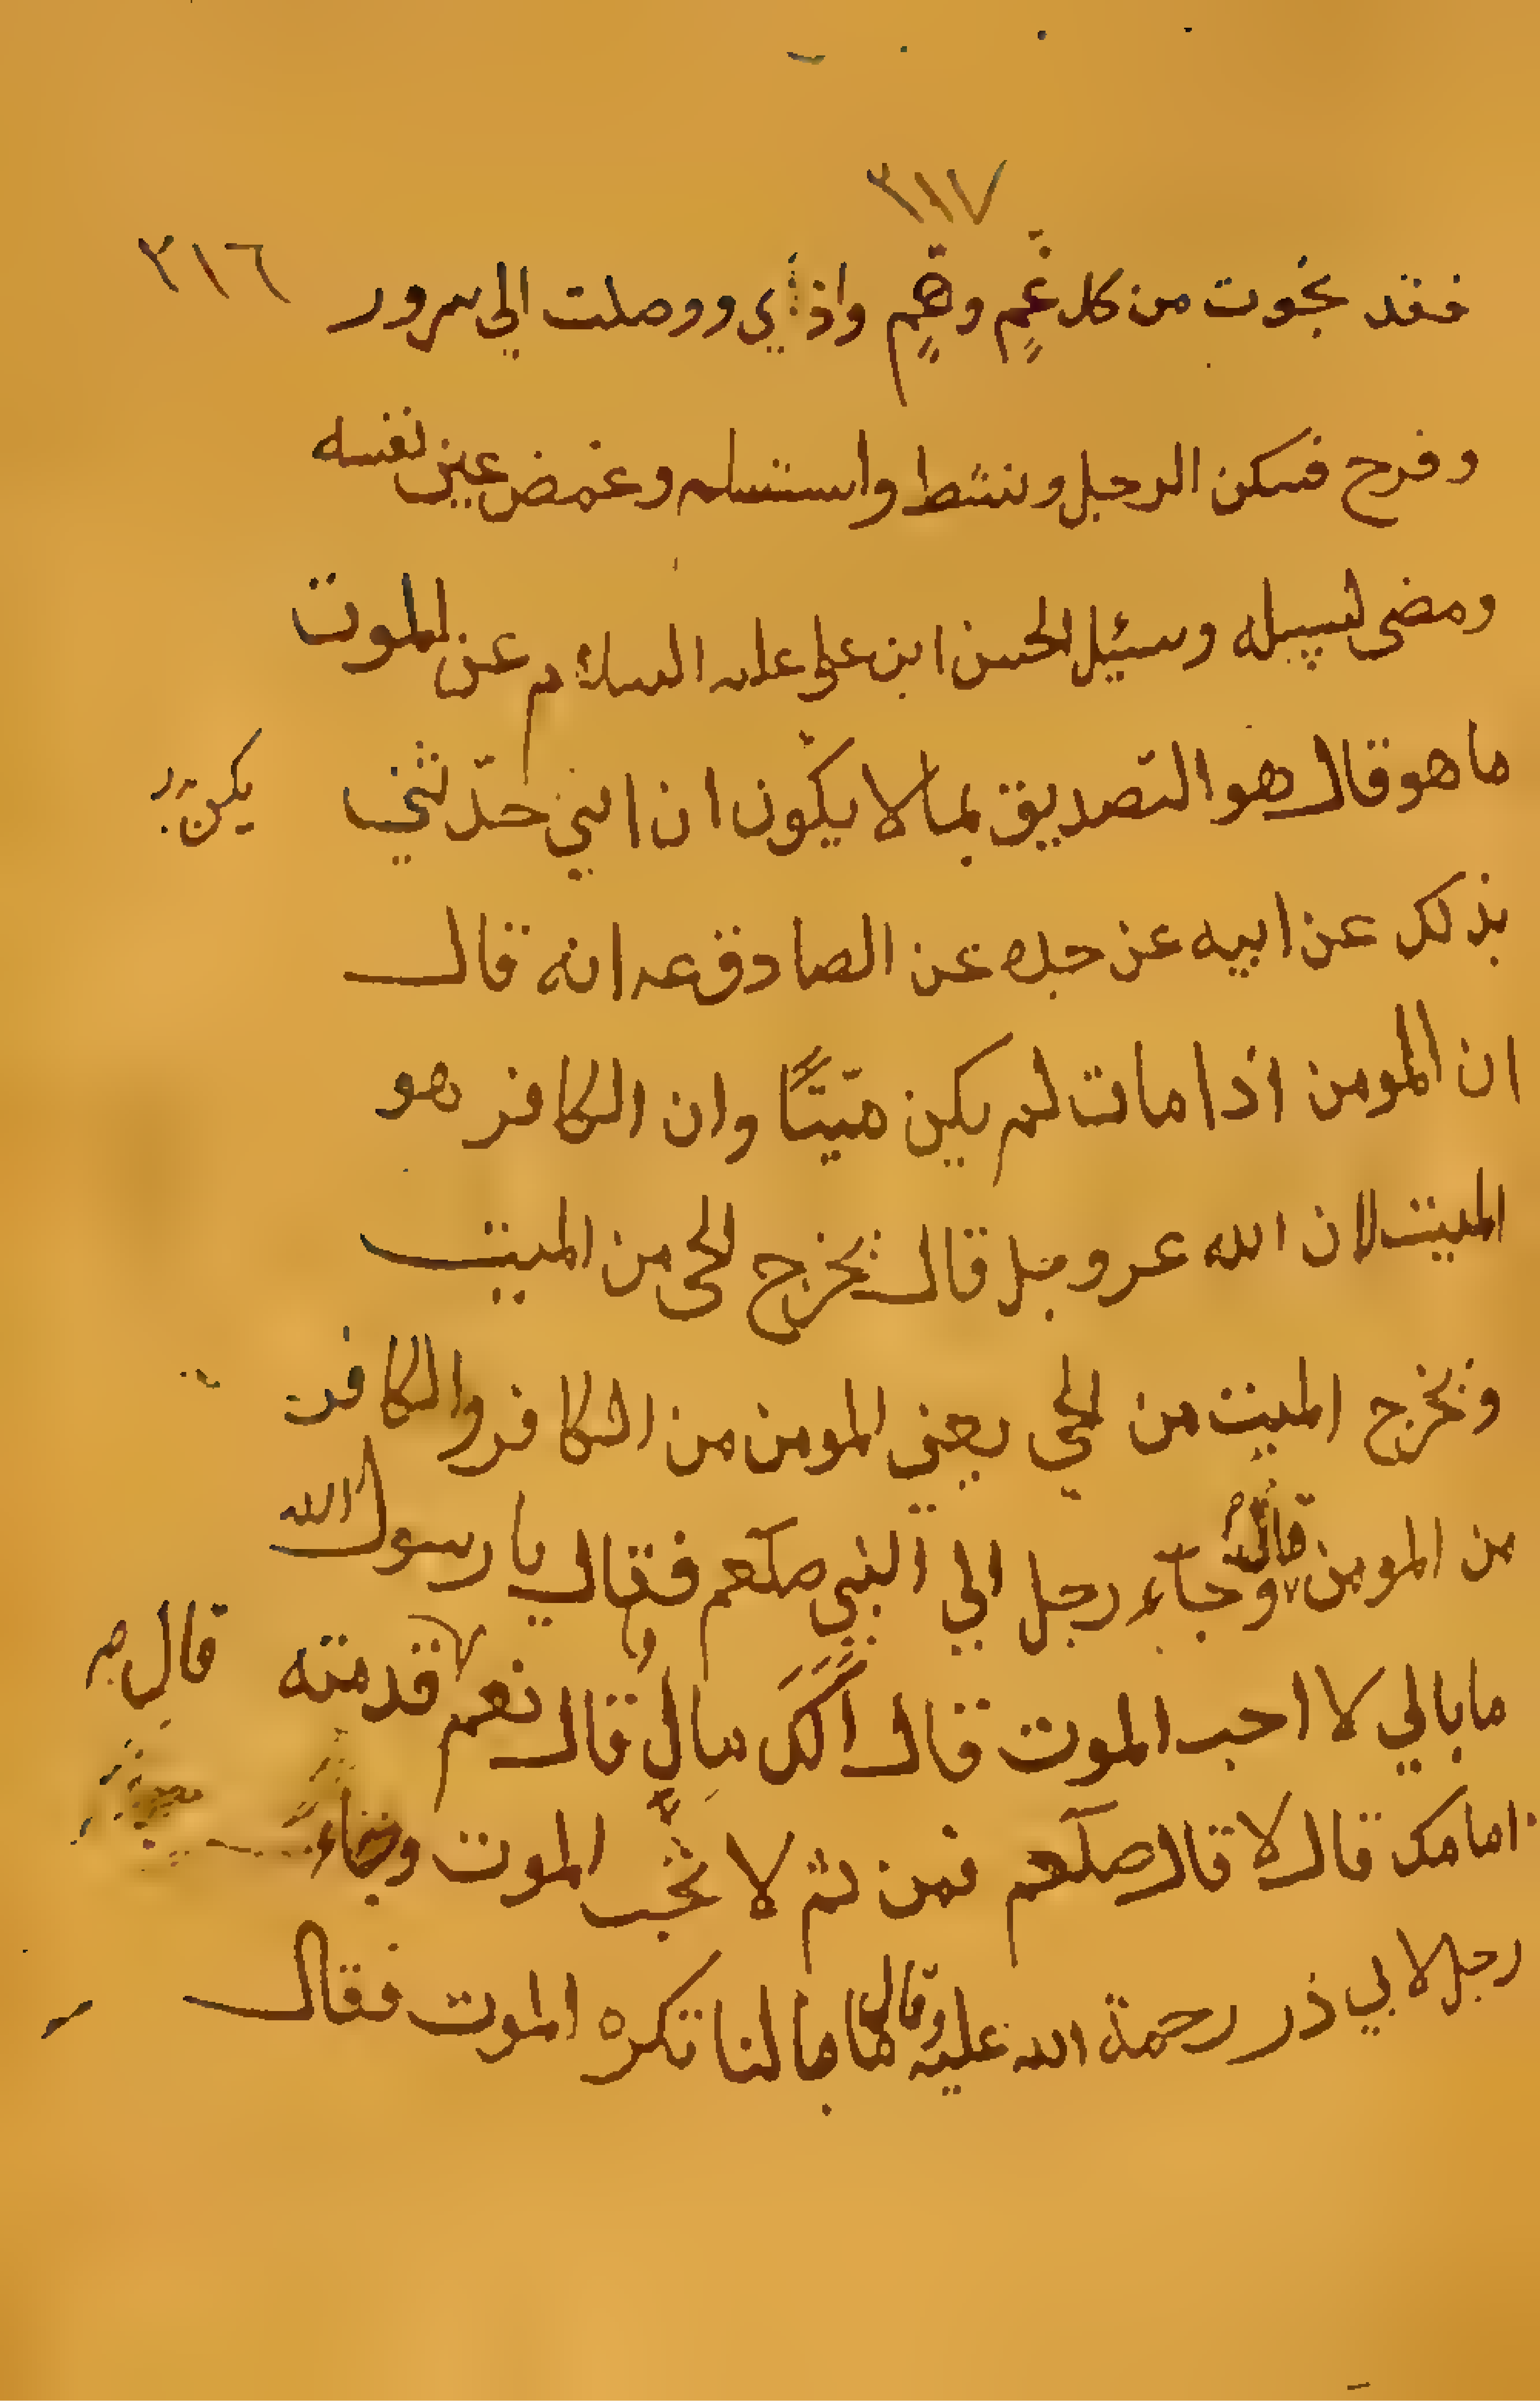 ٣١٧
٢١٦
فقد نجوت من كل غم وهم واذي ووصلت الى سرور
وفرح فسكن الرجل ونشط واستسلم وغمض عين نفسه
ومضى لسبيله وسئيل الحسن ابن على عليه السلام عن الموت
ما هو قال هو التصديق بما لا يكون ان ابي حدّثني
يكن
بذلك عن ابيه عن جده عن الصادق عه انه قال
ان المومن اذا مات لم يكن ميّتًا وان الكافر هو
الميت لان الله عز وجل قال يخرج الحى من الميت
ونخرج الميت من الحي يعني المومن من الكافر والكافر
من المومن قال وجآء رجل الي النبي صلعم فقال يا رسول الله
ما بالي لا احب الموت قال الك مال قال نعم قال قدمته
امامك قال لا قال صلعم فمن ثم لا تحب الموت وجاء
رجل لابي ذر رحمة الله عليه وقال ما مالنا نكره الموت فقال